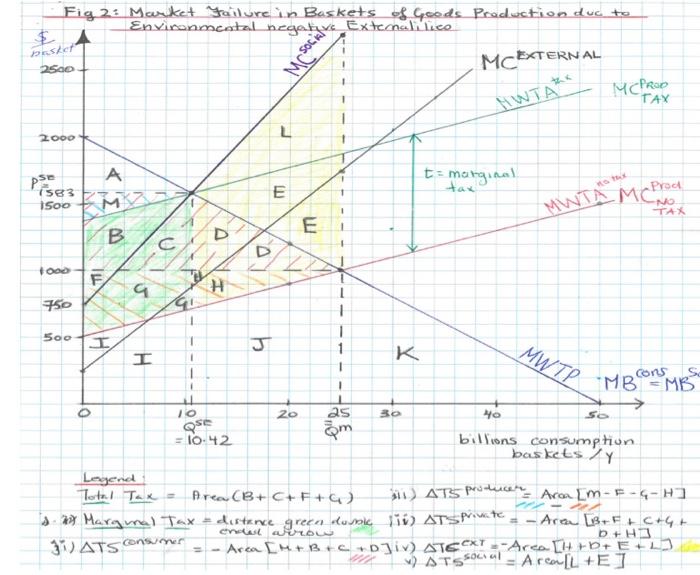 Fig 2: Market Failure in Baskets of Goods Production due to
Environmental negative Externalilies
$/basket
2500
2000
P^SE = 1583
1500
1000
750
500
0
MC^social
MC^EXTERNAL
MWTA^tax
MC^PROD TAX
t = marginal tax
MWTA^no tax
MC^Prod NO TAX
A
L
M
E
B
C
D
E
D
F
G
H
H
G
I
I
J
K
MWTP
MB^cons = MB^S
0 10 20 25 30 40 50
Q^SE = 10.42
= Qm
billions consumption
baskets /y
Legend:
Total Tax = Area (B+C+F+G)
Marginal Tax = distance green double
ended arrow
ii) ΔTS^consumer = - Area [M+B+C+D]
iii) ΔTS^producer = Area [M-F-G-H]
iii) ΔTS^private = - Area [B+F+C+G+
D+H]
iv) ΔTC^EXT = -Area [H+D+E+L]
v) ΔTS^social = Area [L+E]